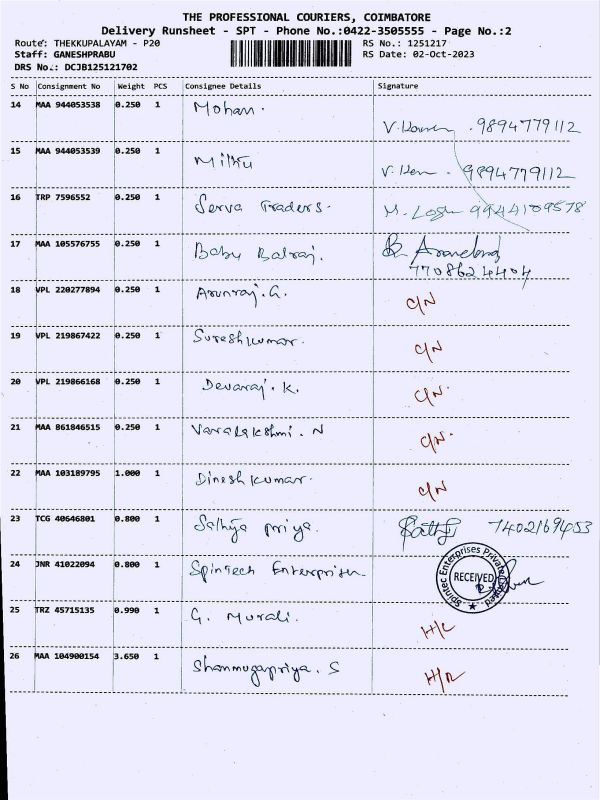 THE PROFESSIONAL COURIERS, COIMBATORE
Delivery Runsheet - SPT - Phone No.:0422-3505555 - Page No.:2
Route: THEKKUPALAYAM - P20 RS No.: 1251217
Staff: GANESHPRABU RS Date: 02-Oct-2023
DRS No.: DCJB125121702
S No Consignment No Weight PCS Consignee Details Signature
14 MAA 944053538 0.250 1 Mohan.
9894779112
15 MAA 944053539 0.250 1 Milku
9894779112
16 TRP 7596552 0.250 1 Serva Traders. 9944109578
17 MAA 105576755 0.250 1 Babu Balraj.
7708624404
18 VPL 220277894 0.250 1 Arunraj.G. C/N
19 VPL 219867422 0.250 1 Sureshkumar. C/N
20 VPL 219866168 0.250 1 Devaraj. K. C/N.
21 MAA 861846515 0.250 1 Varalakshmi. N C/N.
22 MAA 103189795 1.000 1 Dineshkumar. C/N
23 TCG 40646801 0.800 1 Sathya priya.
24 JNR 41022094 0.800 1 Spintech Enterprises. Spintec Enterprises Private Limited RECEIVED
25 TRZ 45715135 0.990 1 G. Murali. H/L
26 MAA 104900154 3.650 1 Shanmugapriya. S H/R